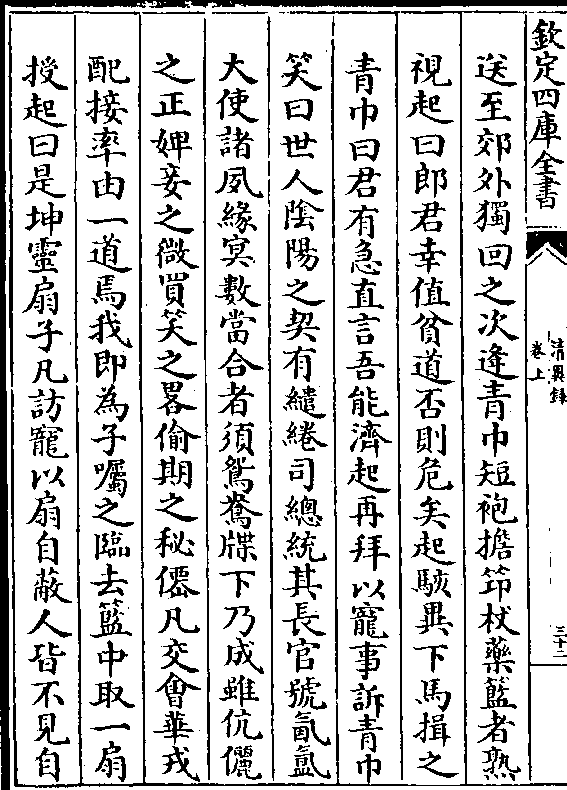 欽定四庫全書
清異錄
卷上
三十二
送至郊外獨回之次逢青巾短袍擔笻杖藥籃者熟
視起曰郎君幸值貧道否則危矣起駭異下馬揖之
青巾曰君有急直言吾能濟起再拜以寵事訴青巾
笑曰世人隂陽之契有繾綣司總統其長官號氤氲
大使諸夙緣冥數當合者須鴛鴦牒下乃成雖伉儷
之正婢妾之微買笑之畧偷期之秘僊凡交會華戎
配接率由一道焉我即為子囑之臨去籃中取一扇
授起曰是坤靈扇子凡訪寵以扇自蔽人皆不見自